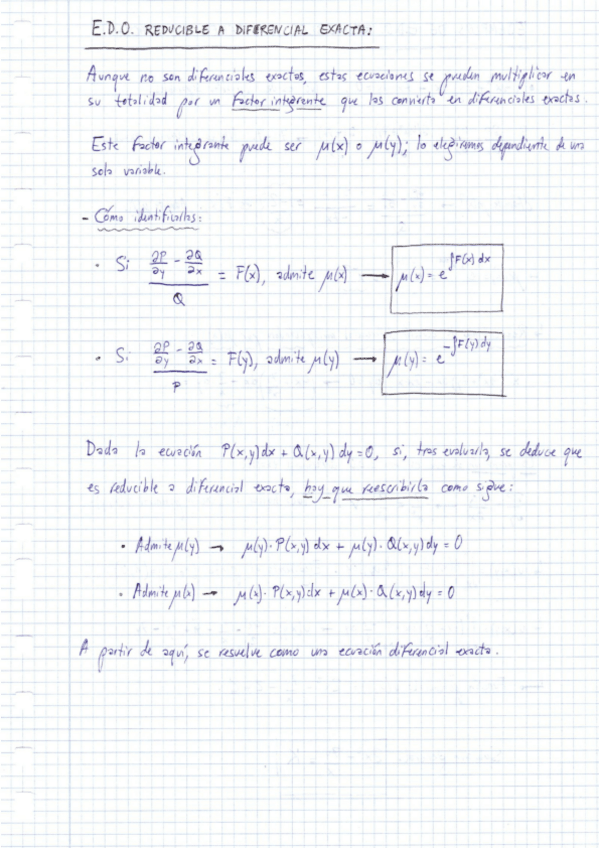 E.D.O. REDUCIBLE A DIFERENCIAL EXACTA:
Aunque no son diferenciales exactas, estas ecuaciones se pueden multiplicar en
su totalidad por un factor integrante que las convierta en diferenciales exactas.
Este factor integrante puede ser μ(x) o μ(y); lo elegiremos dependiente de una
sola variable.
- Cómo identificarlas:
• Si (∂P/∂y - ∂Q/∂x)/Q = F(x), admite μ(x) → μ(x) = e^{∫F(x) dx}
• Si (∂P/∂y - ∂Q/∂x)/P = F(y), admite μ(y) → μ(y) = e^{-∫F(y) dy}
Dada la ecuación P(x,y)dx + Q(x,y) dy = 0, si, tras evaluarla, se deduce que
es reducible a diferencial exacta, hay que reescribirla como sigue:
• Admite μ(y) → μ(y)· P(x,y) dx + μ(y)· Q(x,y) dy = 0
• Admite μ(x) → μ(x)· P(x,y) dx + μ(x)· Q(x,y) dy = 0
A partir de aquí, se resuelve como una ecuación diferencial exacta.